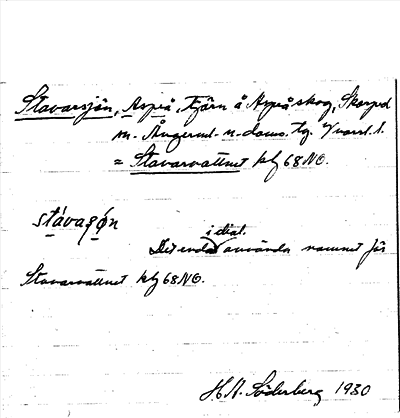 Stavarsjön, Aspeå, Tjärn å Aspeå skog, Skorped
m. Ångerml. n. doms. tg.
= Stavarvattnet kbl 68 NO.
stávaṣǫ́n
i dial.
Det enda använda namnet för
Stavarvattnet kbl 68 NO.
H. A. Söderberg 1930